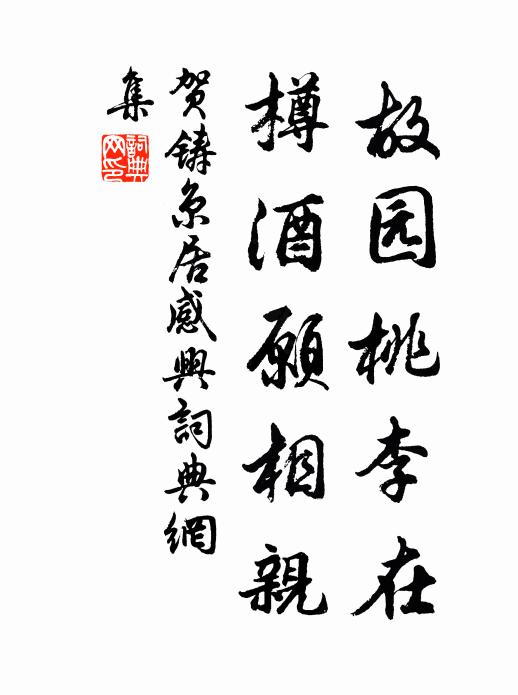 故园桃李在
樽酒願相親
贺铸京居感興詞典網
集
詞典
网印